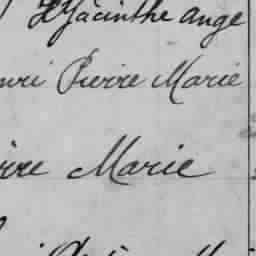 Hyacinthe Ange
nri Pierre Marie
rre Marie